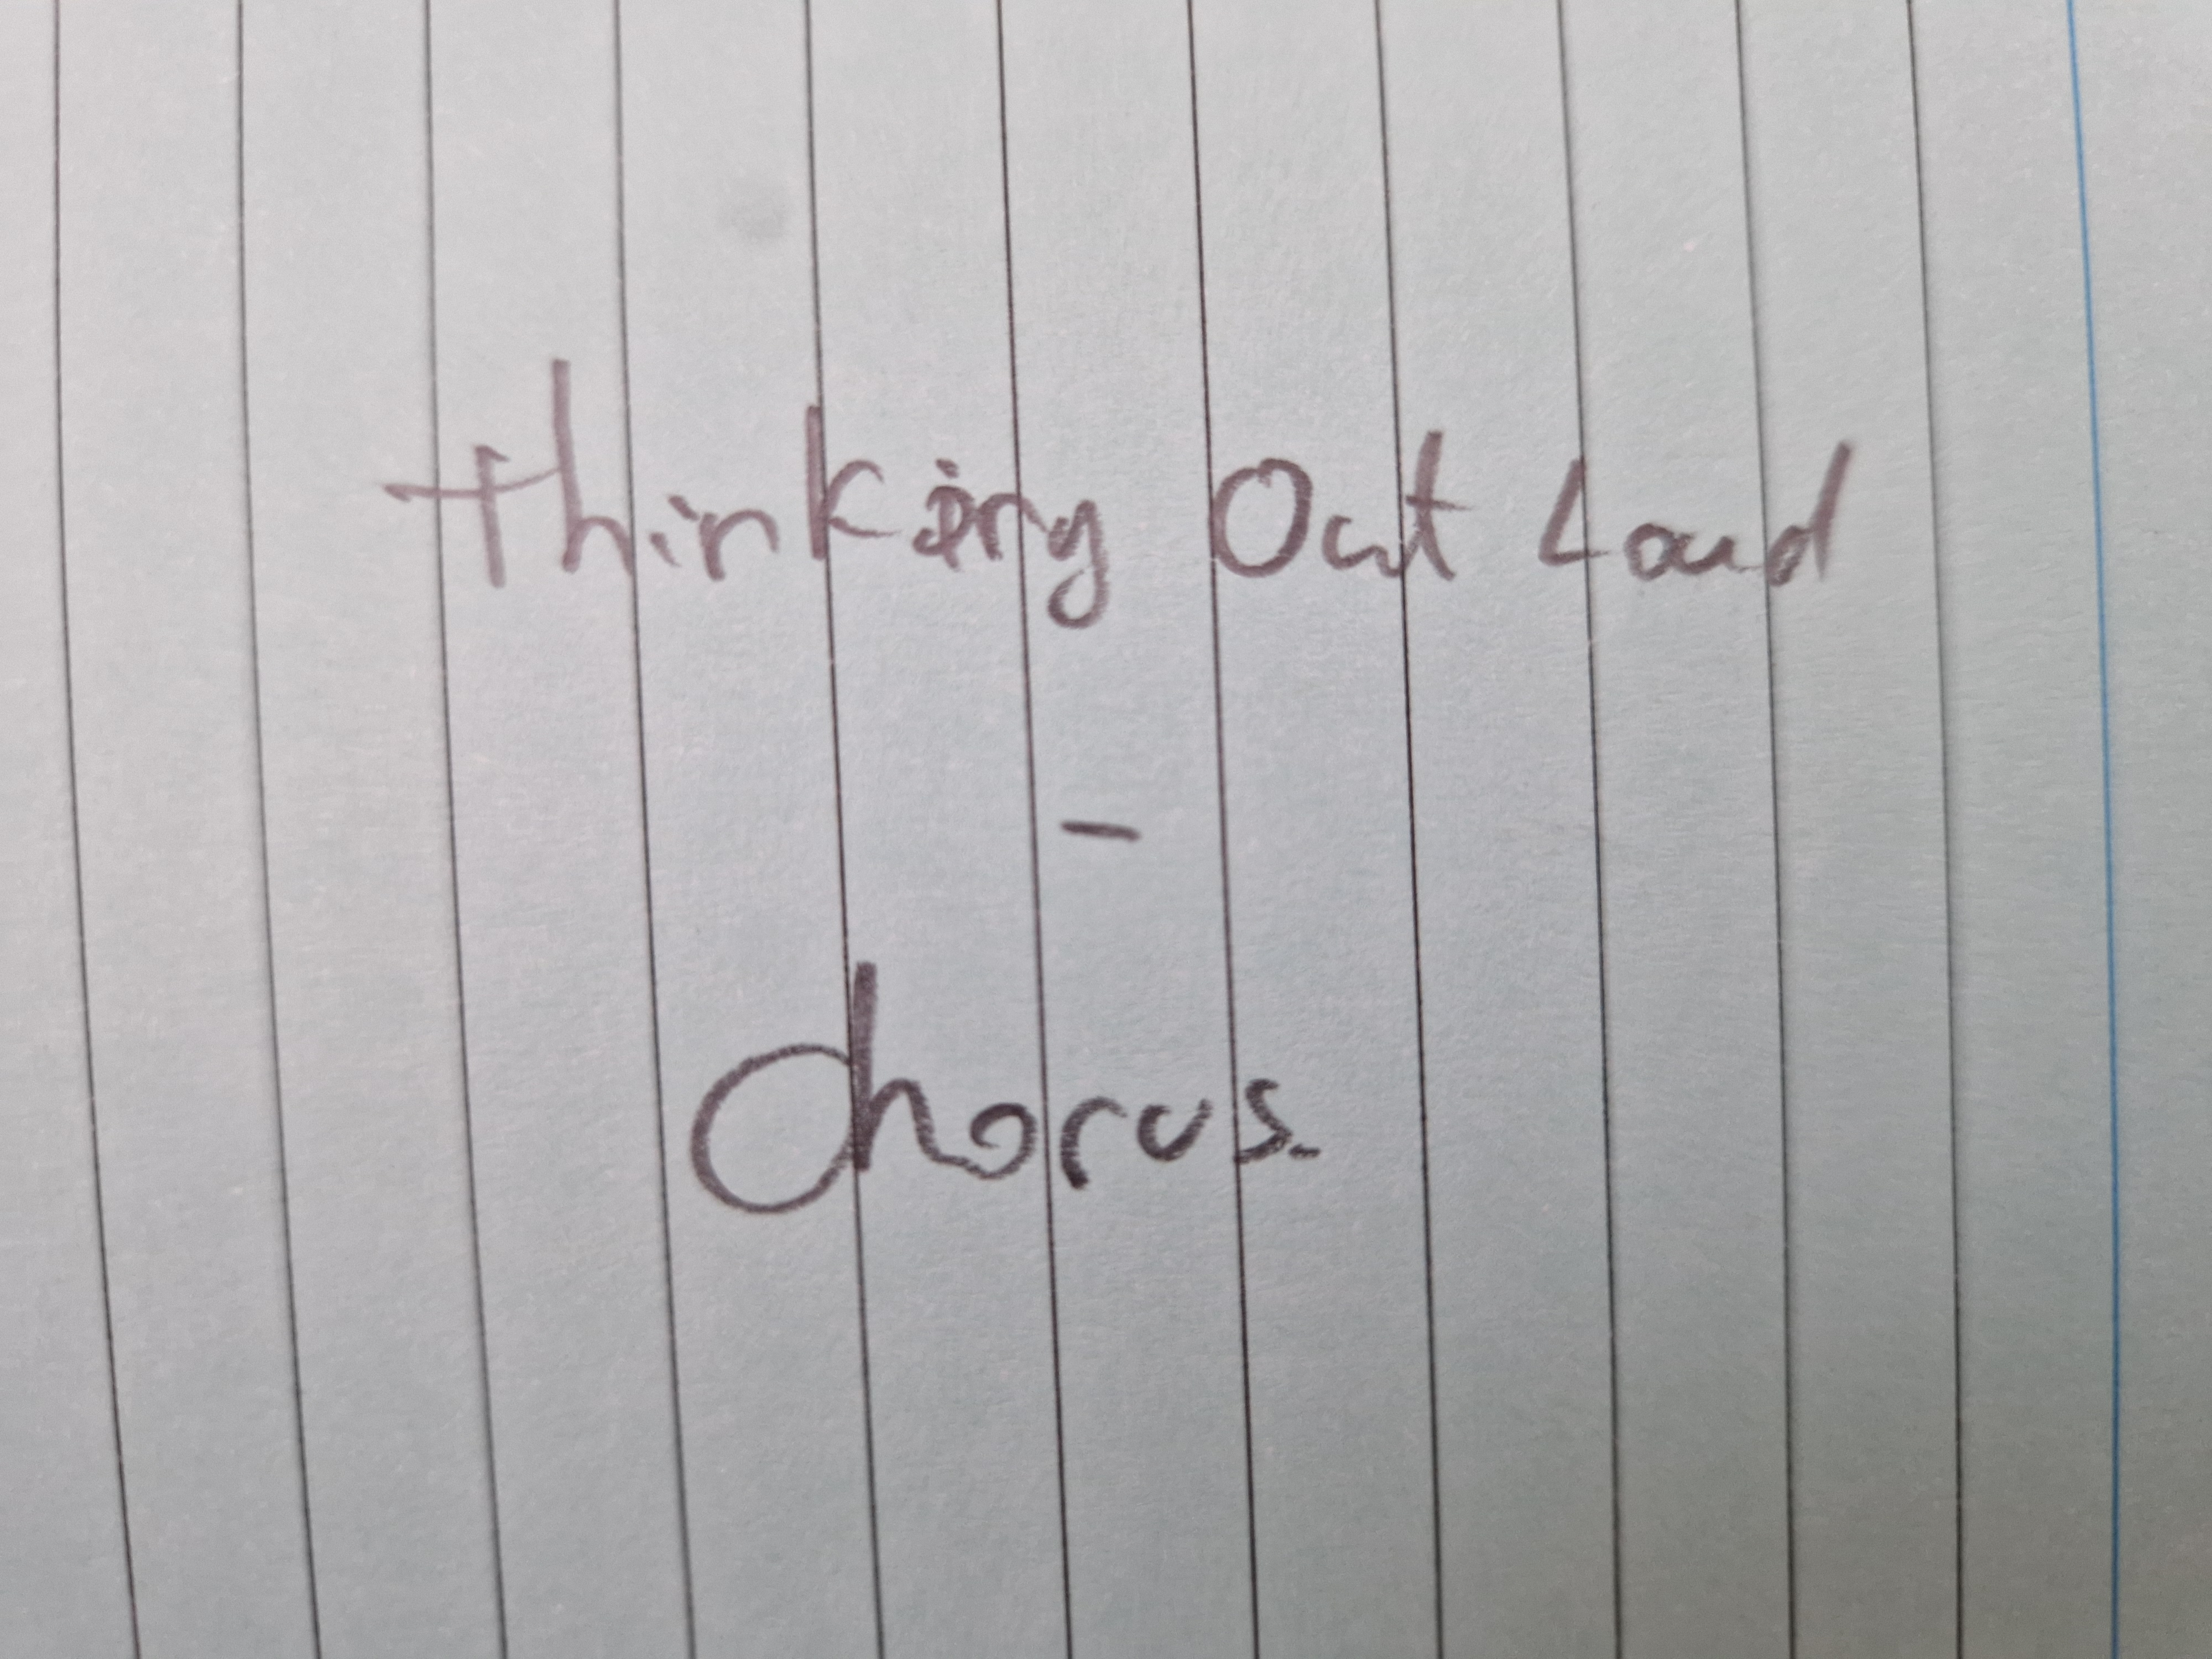 Thinking Out Loud
-
Chorus